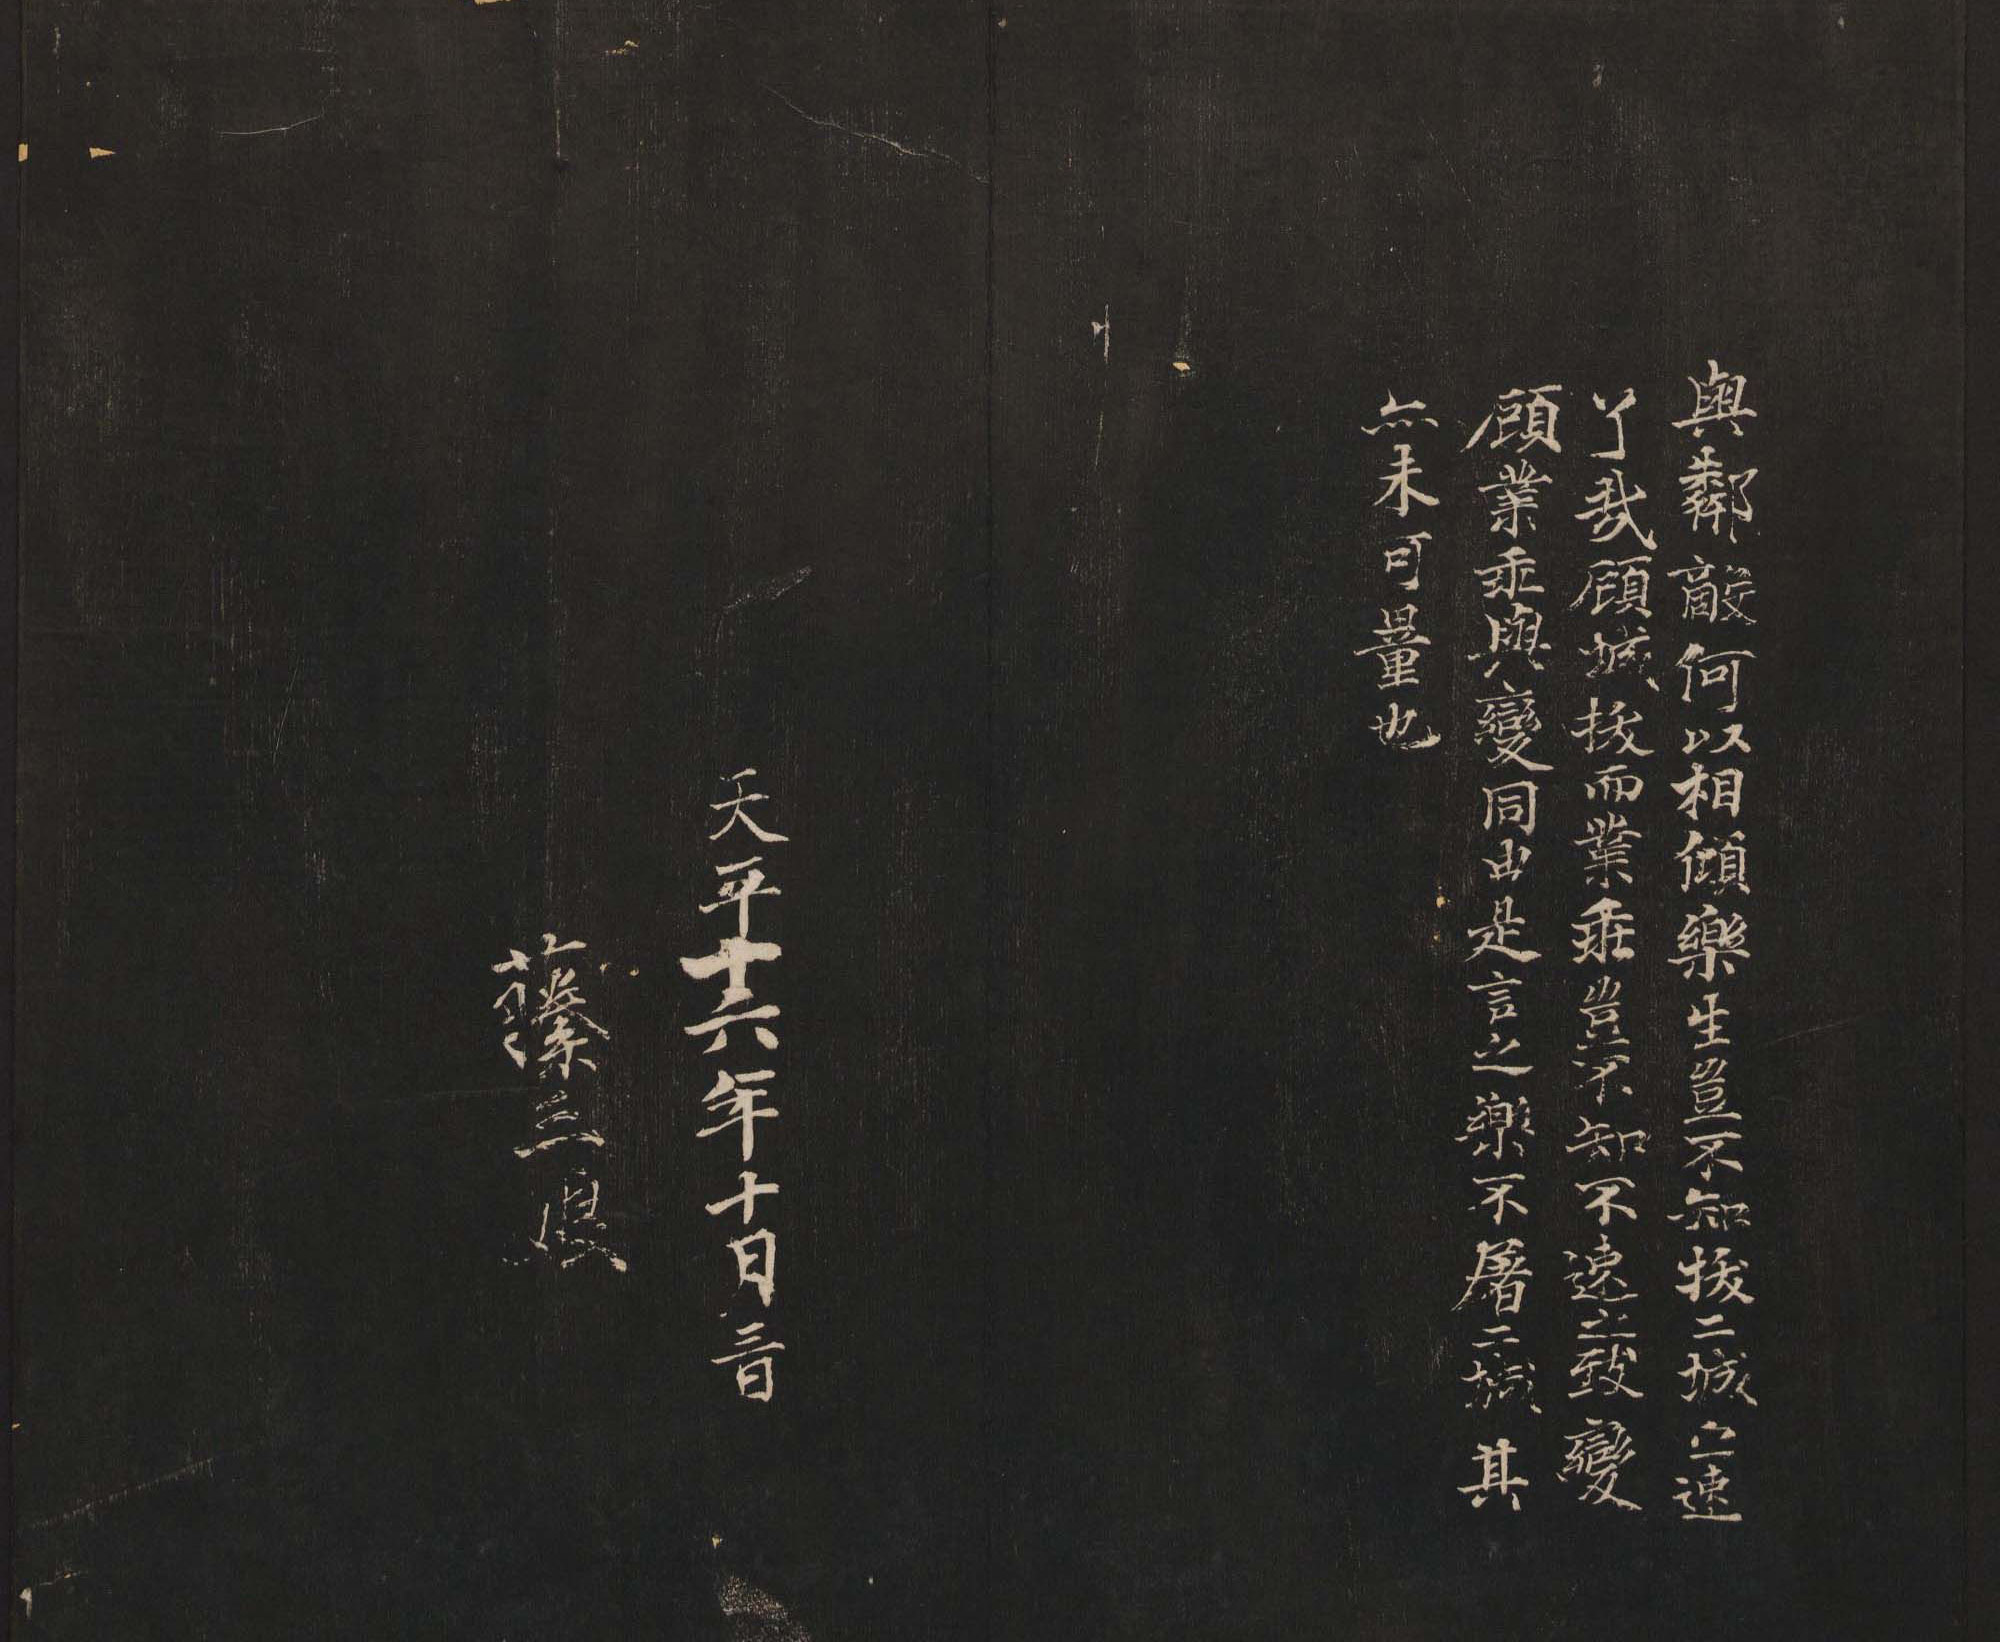 與鄰敵何以相傾樂生豈不知拔二城之速
了哉顧城拔而業乖豈不知不速之致變
顧業乖與變同由是言之樂不屠二城其
亦未可量也
天平十六年十月三日
藤三娘